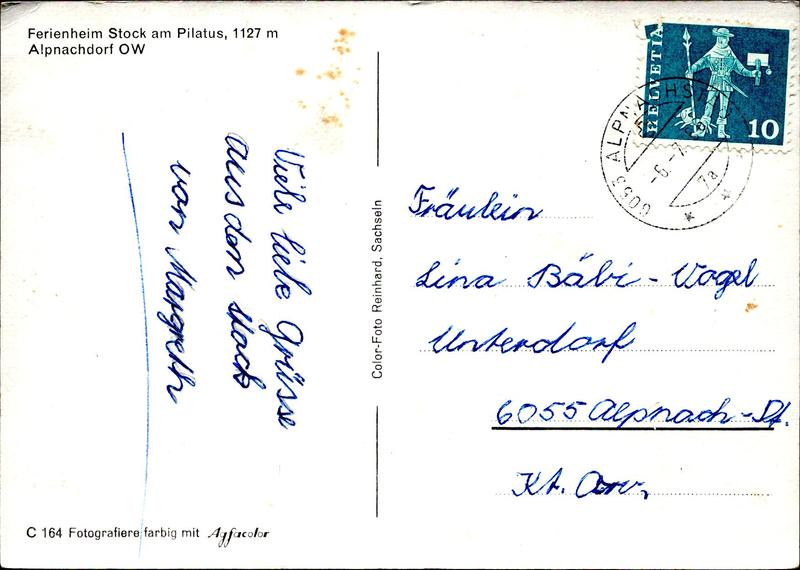 Ferienheim Stock am Pilatus, 1127 m
Alpnachdorf OW
Viele liebe Grüsse
aus den Stock
von Margreth
C 164 Fotografiere farbig mit Agfacolor
Color-Foto Reinhard, Sachseln
HELVETIA
10
6053 ALPNACHST
-6.-7
7a
Fräulein
Lina Bäbi-Vogel
Unterdorf
6055 Alpnach-Df.
Kt.